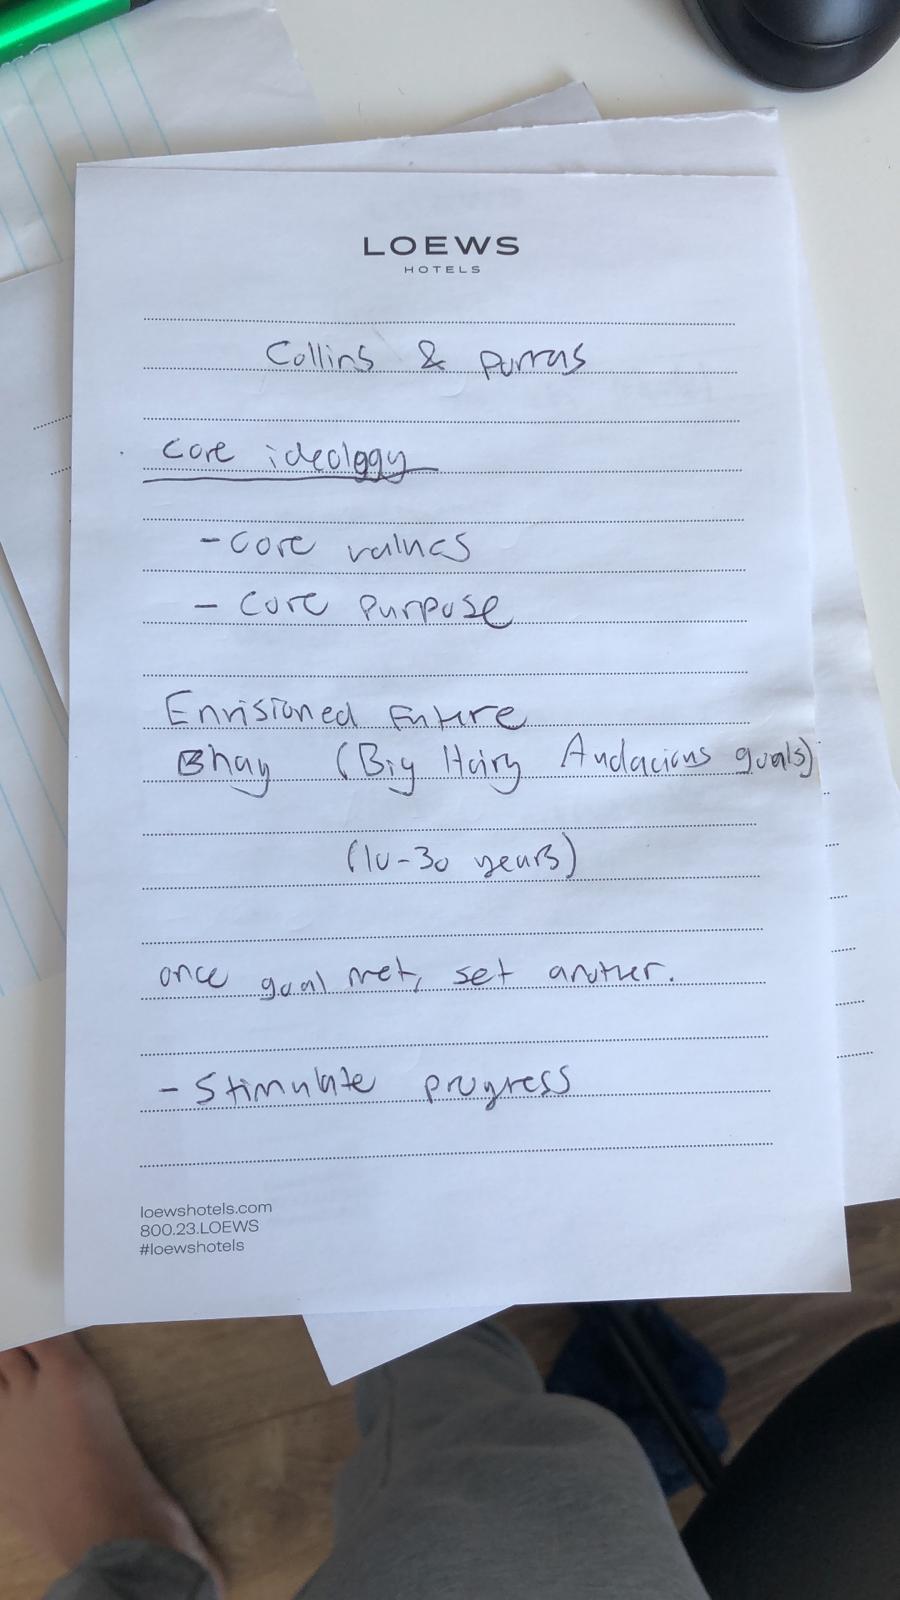 LOEWS
HOTELS
Collins & Porras
Core ideology
- Core values
- Core Purpose
Envisioned Future
Bhag (Big Hairy Audacious goals)
(10-30 years)
once goal met, set another.
- Stimulate progress
loewshotels.com
800.23.LOEWS
#loewshotels